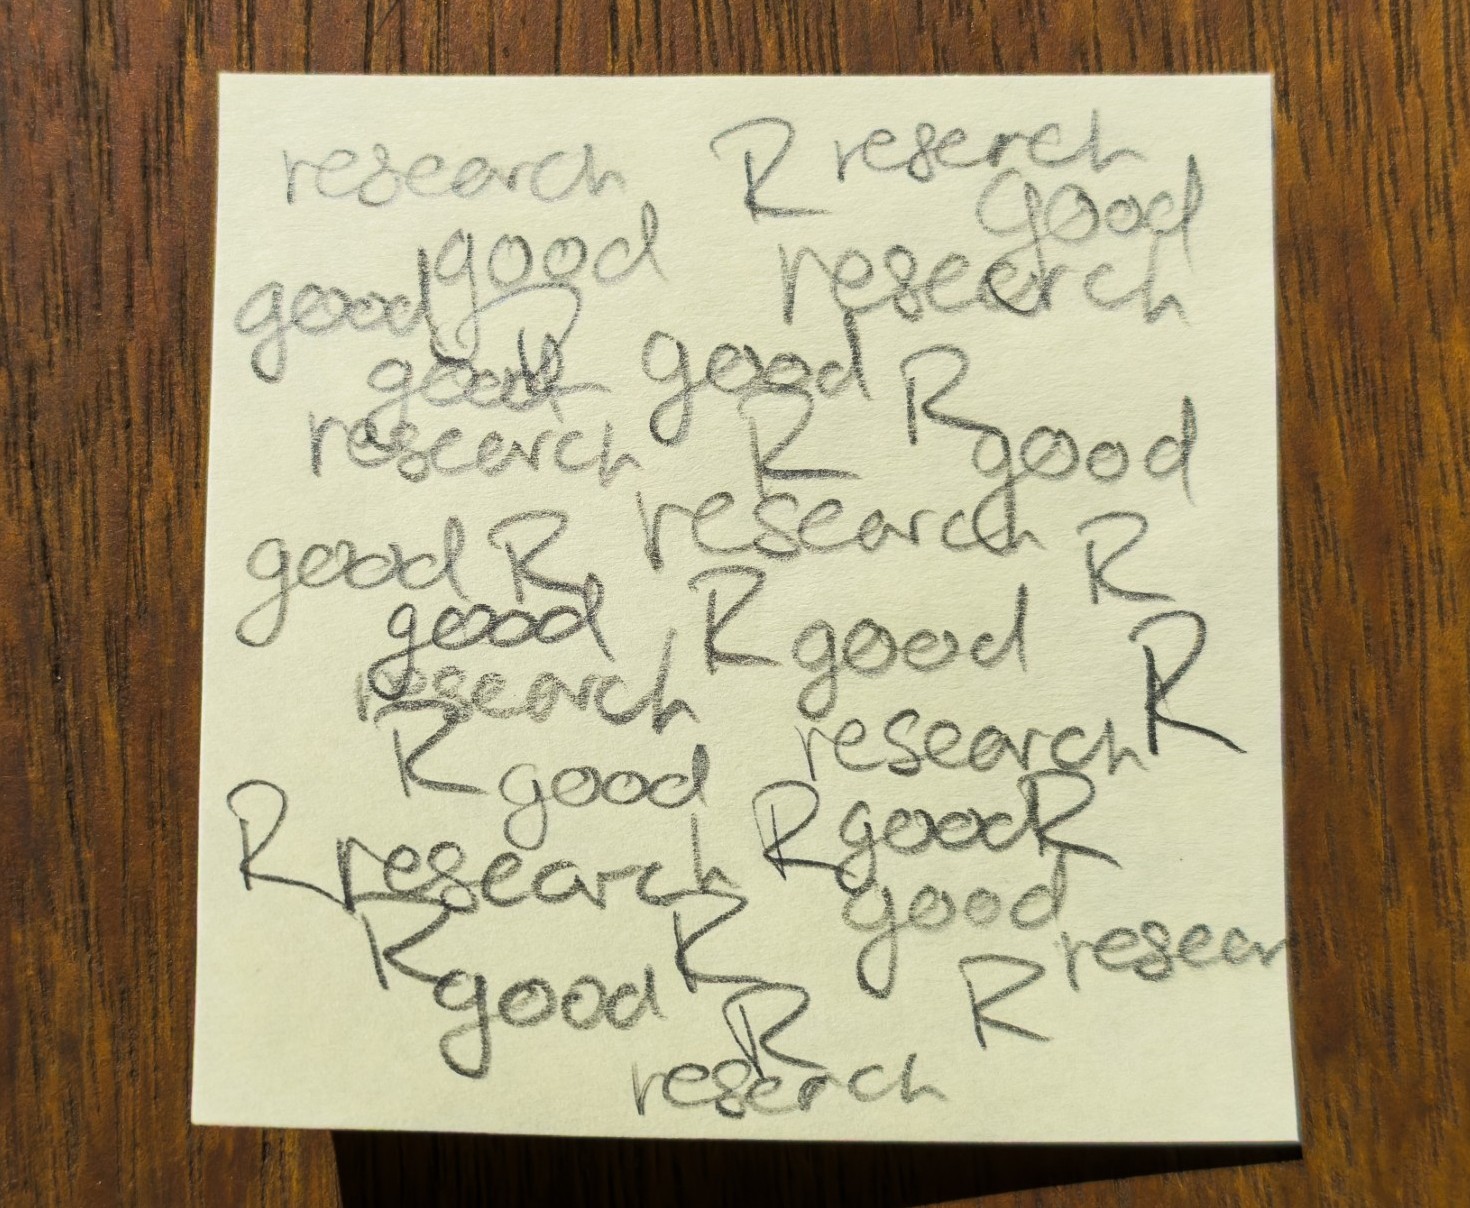 research R reserch
good
good research
good R
good good R
research R good
research
good R R
good R good
research R
R research
good
R research R good R
good
R R resear
good R
R
reserch